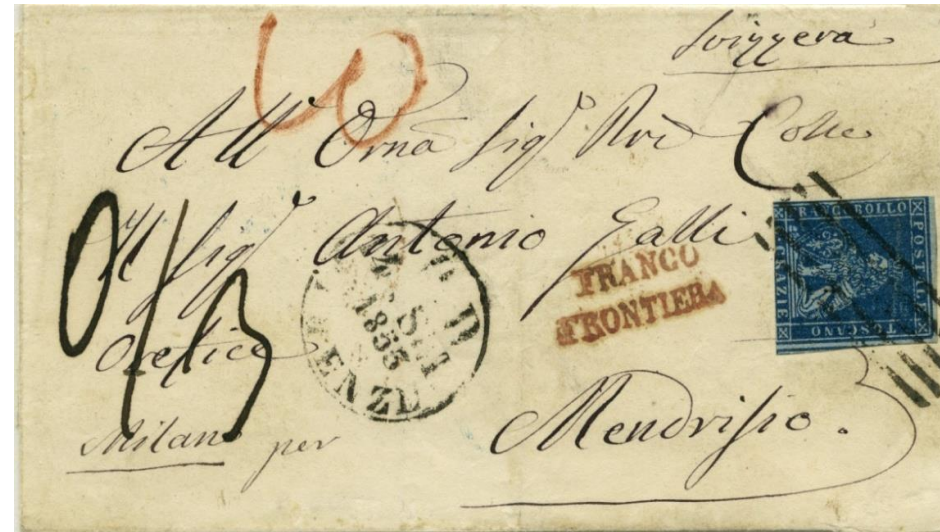 Svizzera
All' Orn̄a Sig.r
Il Sig.r Antonio Galli
Orefice
Milano per Mendrisio.
FRANCO
FRONTIERA
1853
FIRENZE
FRANCOBOLLO
POSTALE
TOSCANO
CRAZIE